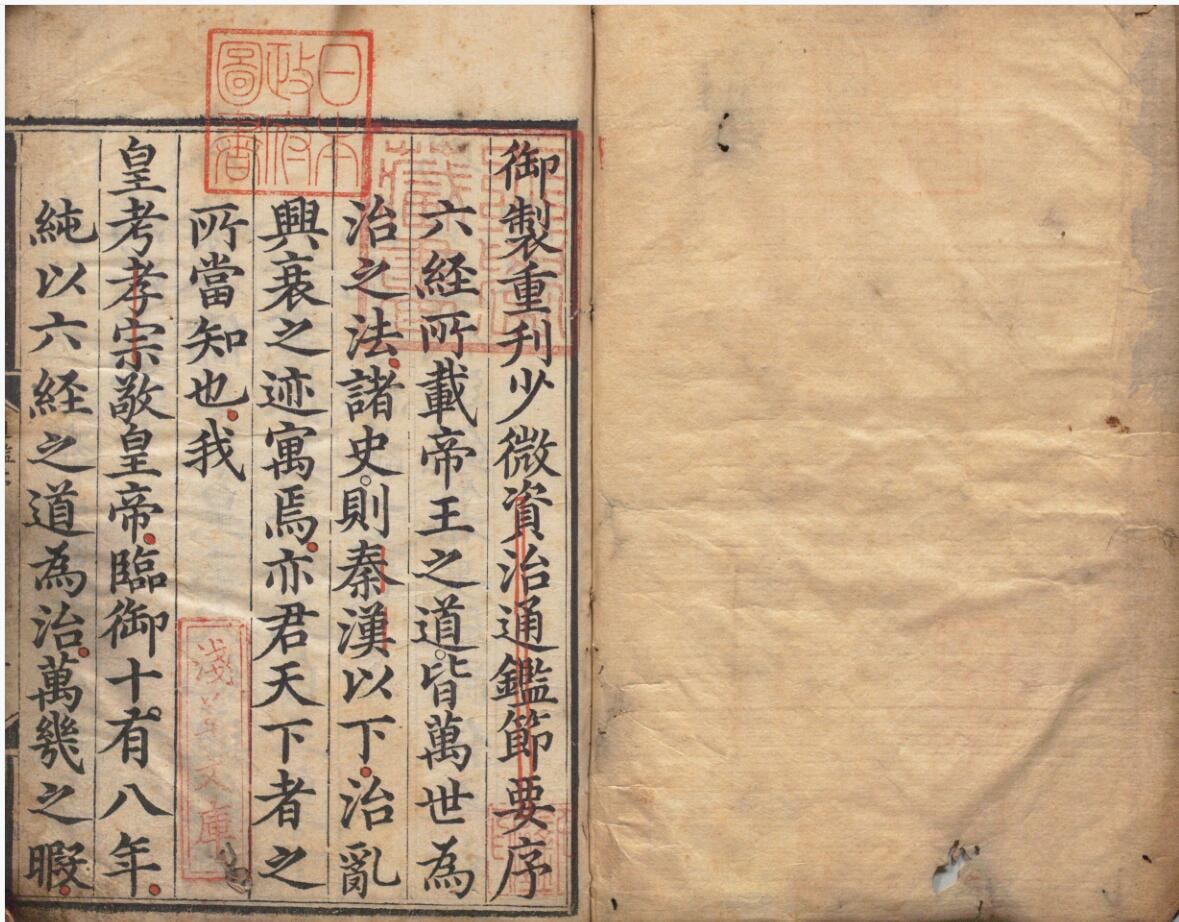 御製重刊少微資治通鑑節要序
六経所載帝王之道皆萬世為
治之法諸史則秦漢以下治亂
興衰之迹寓焉亦君天下者之
所當知也我
皇考孝宗敬皇帝臨御十有八年
純以六経之道為治萬幾之暇
日本
政府
圖書
淺草文庫